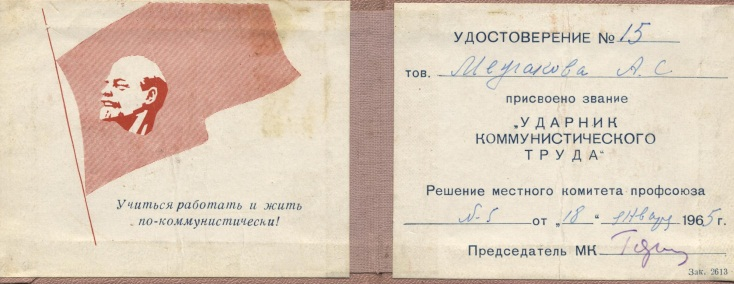 Учиться работать и жить
по-коммунистически!
УДОСТОВЕРЕНИЕ № 15
тов. А. С.
присвоено звание
„УДАРНИК
КОММУНИСТИЧЕСКОГО
ТРУДА"
Решение местного комитета профсоюза
№ 5 от „18" января 1965 г.
Председатель МК
Зак. 2613